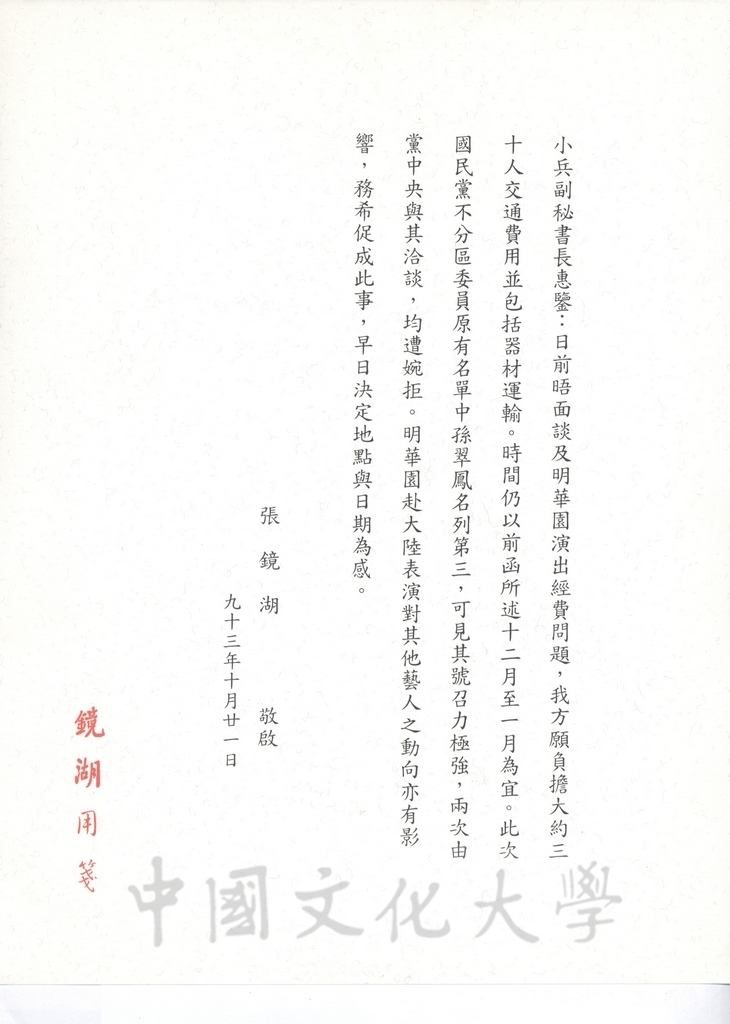 小兵副秘書長惠鑒：日前晤面談及明華園演出經費問題，我方願負擔大約三
十人交通費用並包括器材運輸。時間仍以前函所述十二月至一月為宜。此次
國民黨不分區委員原有名單中孫翠鳳名列第三，可見其號召力極強，兩次由
黨中央與其洽談，均遭婉拒。明華園赴大陸表演對其他藝人之動向亦有影
響，務希促成此事，早日決定地點與日期為感。
張鏡湖　敬啟
九十三年十月廿一日
鏡湖用箋
中國文化大學